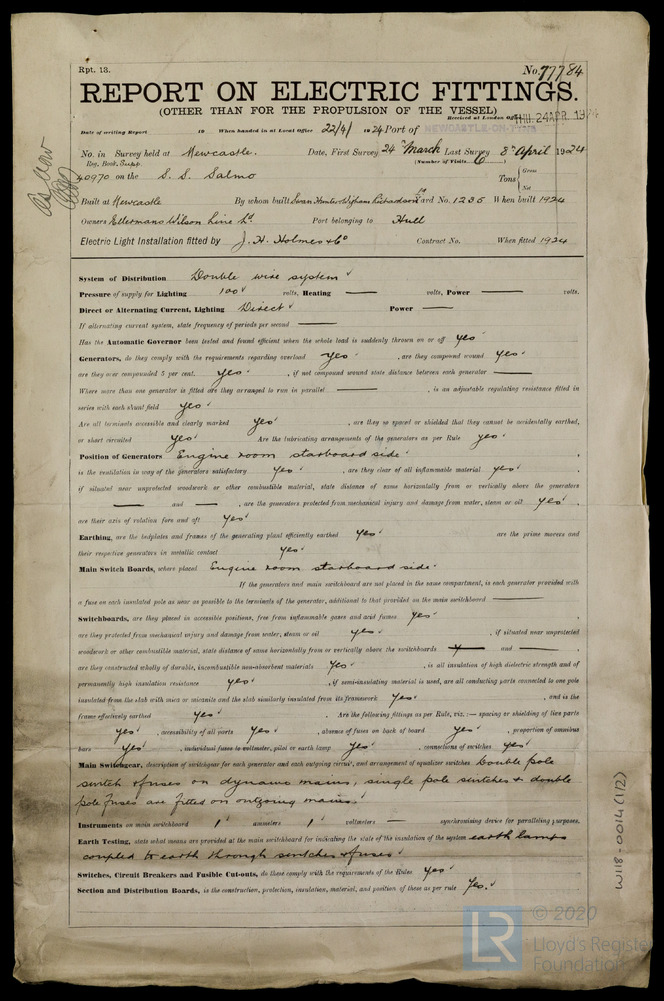 Rpt. 13.
No. 77784
REPORT ON ELECTRIC FITTINGS.
(OTHER THAN FOR THE PROPULSION OF THE VESSEL)
Received at London Office THU. 24 APR. 1924
Date of writing Report 19 When handed in at Local Office 22/4/ 1924 Port of NEWCASTLE-ON-TYNE
No. in Survey held at Newcastle. Date, First Survey 24th March Last Survey 8th April 1924
Reg. Book. Supp. (Number of Visits 6)
40970 on the S. S. Salmo Tons { Gross
Net
Built at Newcastle By whom built Swan Hunter & Wigham Richardson Ld Yard No. 1235 When built 1924
Owners Ellermans Wilson Line Ld Port belonging to Hull
Electric Light Installation fitted by J. H. Holmes & Co Contract No. When fitted 1924
System of Distribution Double wire system
Pressure of supply for Lighting 100 volts, Heating — volts, Power — volts.
Direct or Alternating Current, Lighting Direct Power —
If alternating current system, state frequency of periods per second —
Has the Automatic Governor been tested and found efficient when the whole load is suddenly thrown on or off yes
Generators, do they comply with the requirements regarding overload yes , are they compound wound yes
are they over compounded 5 per cent. yes , if not compound wound state distance between each generator —
Where more than one generator is fitted are they arranged to run in parallel — , is an adjustable regulating resistance fitted in
series with each shunt field yes
Are all terminals accessible and clearly marked yes , are they so spaced or shielded that they cannot be accidentally earthed,
or short circuited yes Are the lubricating arrangements of the generators as per Rule yes
Position of Generators Engine room starboard side
is the ventilation in way of the generators satisfactory yes , are they clear of all inflammable material yes
if situated near unprotected woodwork or other combustible material, state distance of same horizontally from or vertically above the generators
— and — , are the generators protected from mechanical injury and damage from water, steam or oil yes ,
are their axis of rotation fore and aft yes
Earthing, are the bedplates and frames of the generating plant efficiently earthed yes are the prime movers and
their respective generators in metallic contact yes
Main Switch Boards, where placed Engine room starboard side
If the generators and main switchboard are not placed in the same compartment, is each generator provided with
a fuse on each insulated pole as near as possible to the terminals of the generator, additional to that provided on the main switchboard —
Switchboards, are they placed in accessible positions, free from inflammable gases and acid fumes yes
are they protected from mechanical injury and damage from water, steam or oil yes , if situated near unprotected
woodwork or other combustible material, state distance of same horizontally from or vertically above the switchboards — and —
are they constructed wholly of durable, incombustible non-absorbent materials yes , is all insulation of high dielectric strength and of
permanently high insulation resistance yes , if semi-insulating material is used, are all conducting parts connected to one pole
insulated from the slab with mica or micanite and the slab similarly insulated from its framework yes , and is the
frame effectively earthed yes . Are the following fittings as per Rule, viz.:— spacing or shielding of live parts
yes , accessibility of all parts yes , absence of fuses on back of board yes , proportion of omnibus
bars yes , individual fuses to voltmeter, pilot or earth lamp yes , connections of switches yes
Main Switchgear, description of switchgear for each generator and each outgoing circuit, and arrangement of equalizer switches Double pole
switch & fuses on dynamo mains, single pole switches & double
pole fuses are fitted on outgoing mains.
Instruments on main switchboard 1 ammeters 1 voltmeters — synchronising device for paralleling purposes.
Earth Testing, state what means are provided at the main switchboard for indicating the state of the insulation of the system earth lamps
coupled to earth through switches & fuses
Switches, Circuit Breakers and Fusible Cut-outs, do these comply with the requirements of the Rules yes
Section and Distribution Boards, is the construction, protection, insulation, material, and position of these as per rule yes.
W118-0014 (1/2)
LR
© 2020
Lloyd's Register
Foundation